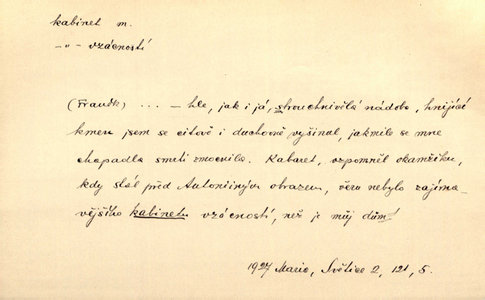 kabinet m.
-"- vzácností
(Franěk) ... – hle, jak i já, strouchnivělá nádoba, hnijící
kmen jsem se citově i duchovně vyšinul, jakmile se mne
chapadla smrti zmocnila. Kabaret, vzpomněl okamžiku,
kdy stál před Antoniiným obrazem, věru nebylo zajíma-
vějšího kabinetu vzácností, než je můj dům!
1927 Maria, Světice 2, 121, 5.